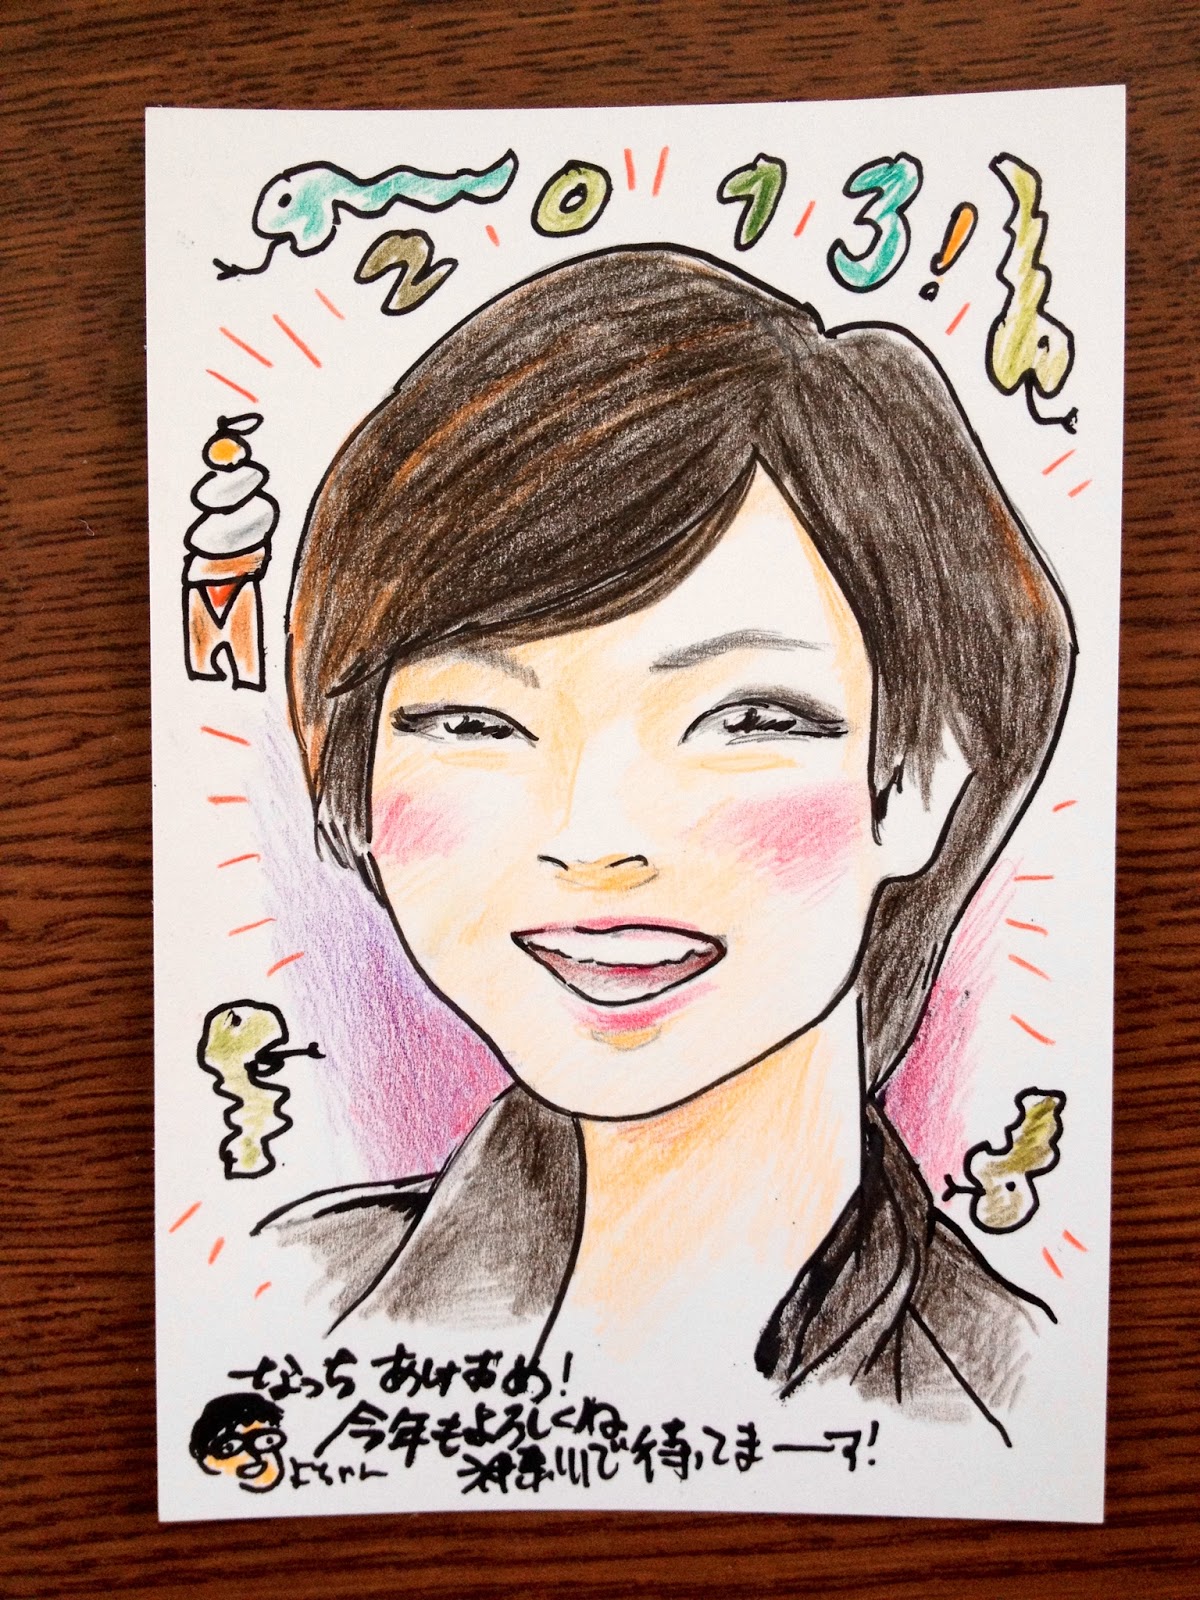 2013!
なっち あけおめ!
今年もよろしくね
神奈川で待ってまーす!
よちゃん